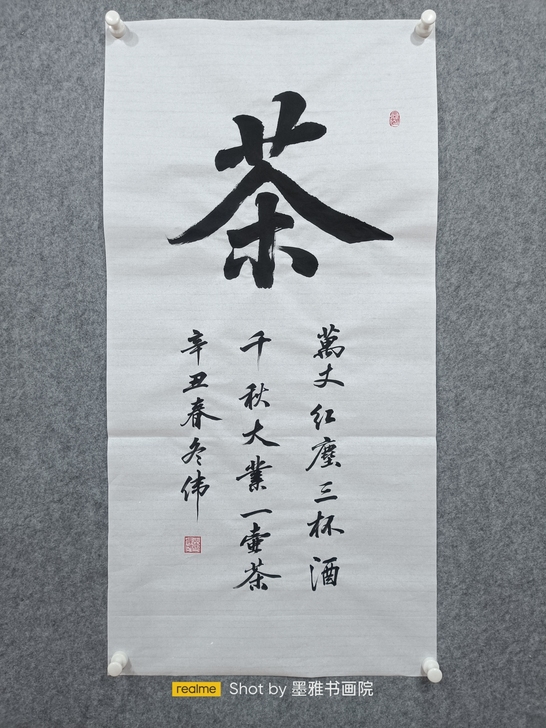 茶
萬丈红塵三杯酒
千秋大業一壷茶
辛丑春冬伟
realme Shot by 墨雅书画院